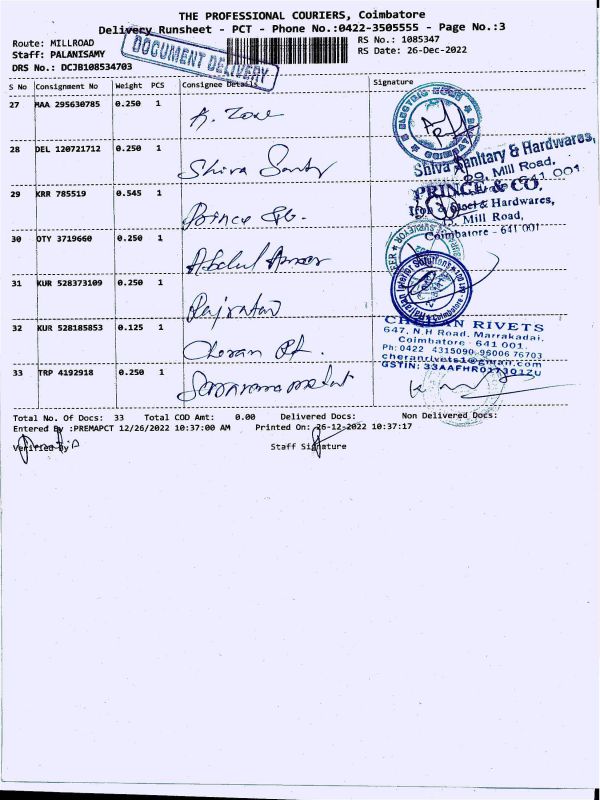 THE PROFESSIONAL COURIERS, Coimbatore
Delivery Runsheet - PCT - Phone No.:0422-3505555 - Page No.:3
Route: MILLROAD
Staff: PALANISAMY
DRS No.: DCJB108534703
DOCUMENT DELIVERY
RS No.: 1085347
RS Date: 26-Dec-2022
S No Consignment No Weight PCS Consignee Details Signature
27 MAA 295630785 0.250 1 A. Zone
28 DEL 120721712 0.250 1 Shiva Sanitry
Shiva Sanitary & Hardwares,
29, Mill Road,
641 001
29 KRR 785519 0.545 1 Prince & Co.
PRINCE & CO.
Iron & Steel & Hardwares,
Mill Road,
Coimbatore - 641 001
30 OTY 3719660 0.250 1 Abdul
31 KUR 528373109 0.250 1 Rajratan
32 KUR 528185853 0.125 1 Cheran
CHERAN RIVETS
647, N.H Road, Marrakadai,
Coimbatore - 641 001.
Ph: 0422 4315090, 96006 76703
cheranrivets1@gmail.com
GSTIN: 33AAFHR0173Q1ZU
33 TRP 4192918 0.250 1
Total No. Of Docs: 33 Total COD Amt: 0.00 Delivered Docs: Non Delivered Docs:
Entered By :PREMAPCT 12/26/2022 10:37:00 AM Printed On: 26-12-2022 10:37:17
Verified By Staff Signature